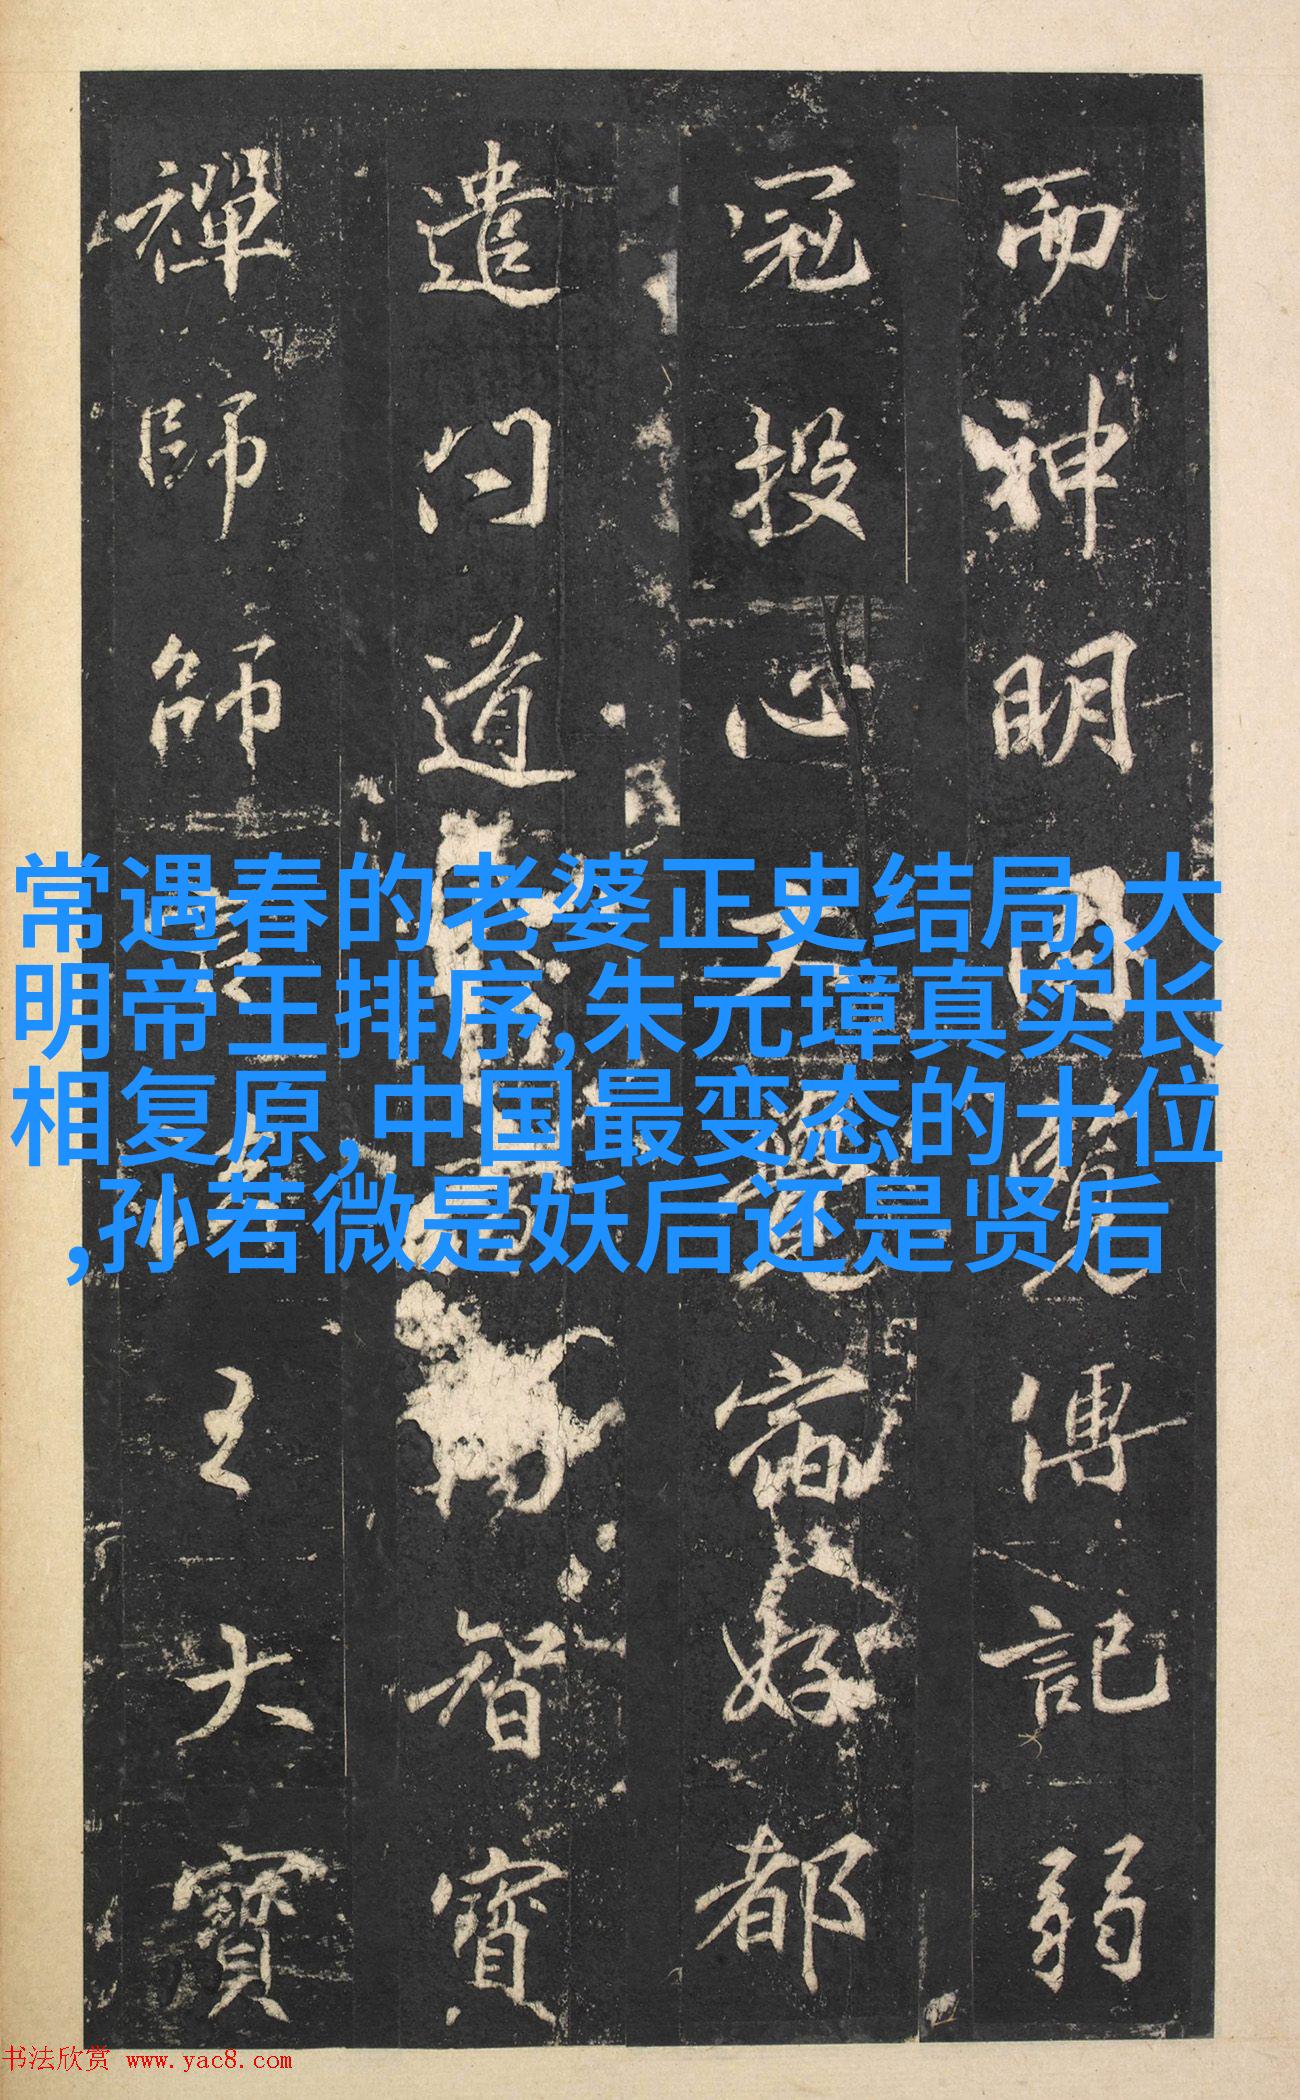 而神明固覽傳記弱
冠投心大覺宿好都
遣问道
智寶
禪師師
王大寶
常遇春的老婆正史结局,大
明帝王排序,朱元璋真实长
相复原,中国最变态的十位
,孙若微是妖后还是贤后
书法欣赏 www.yac8.com